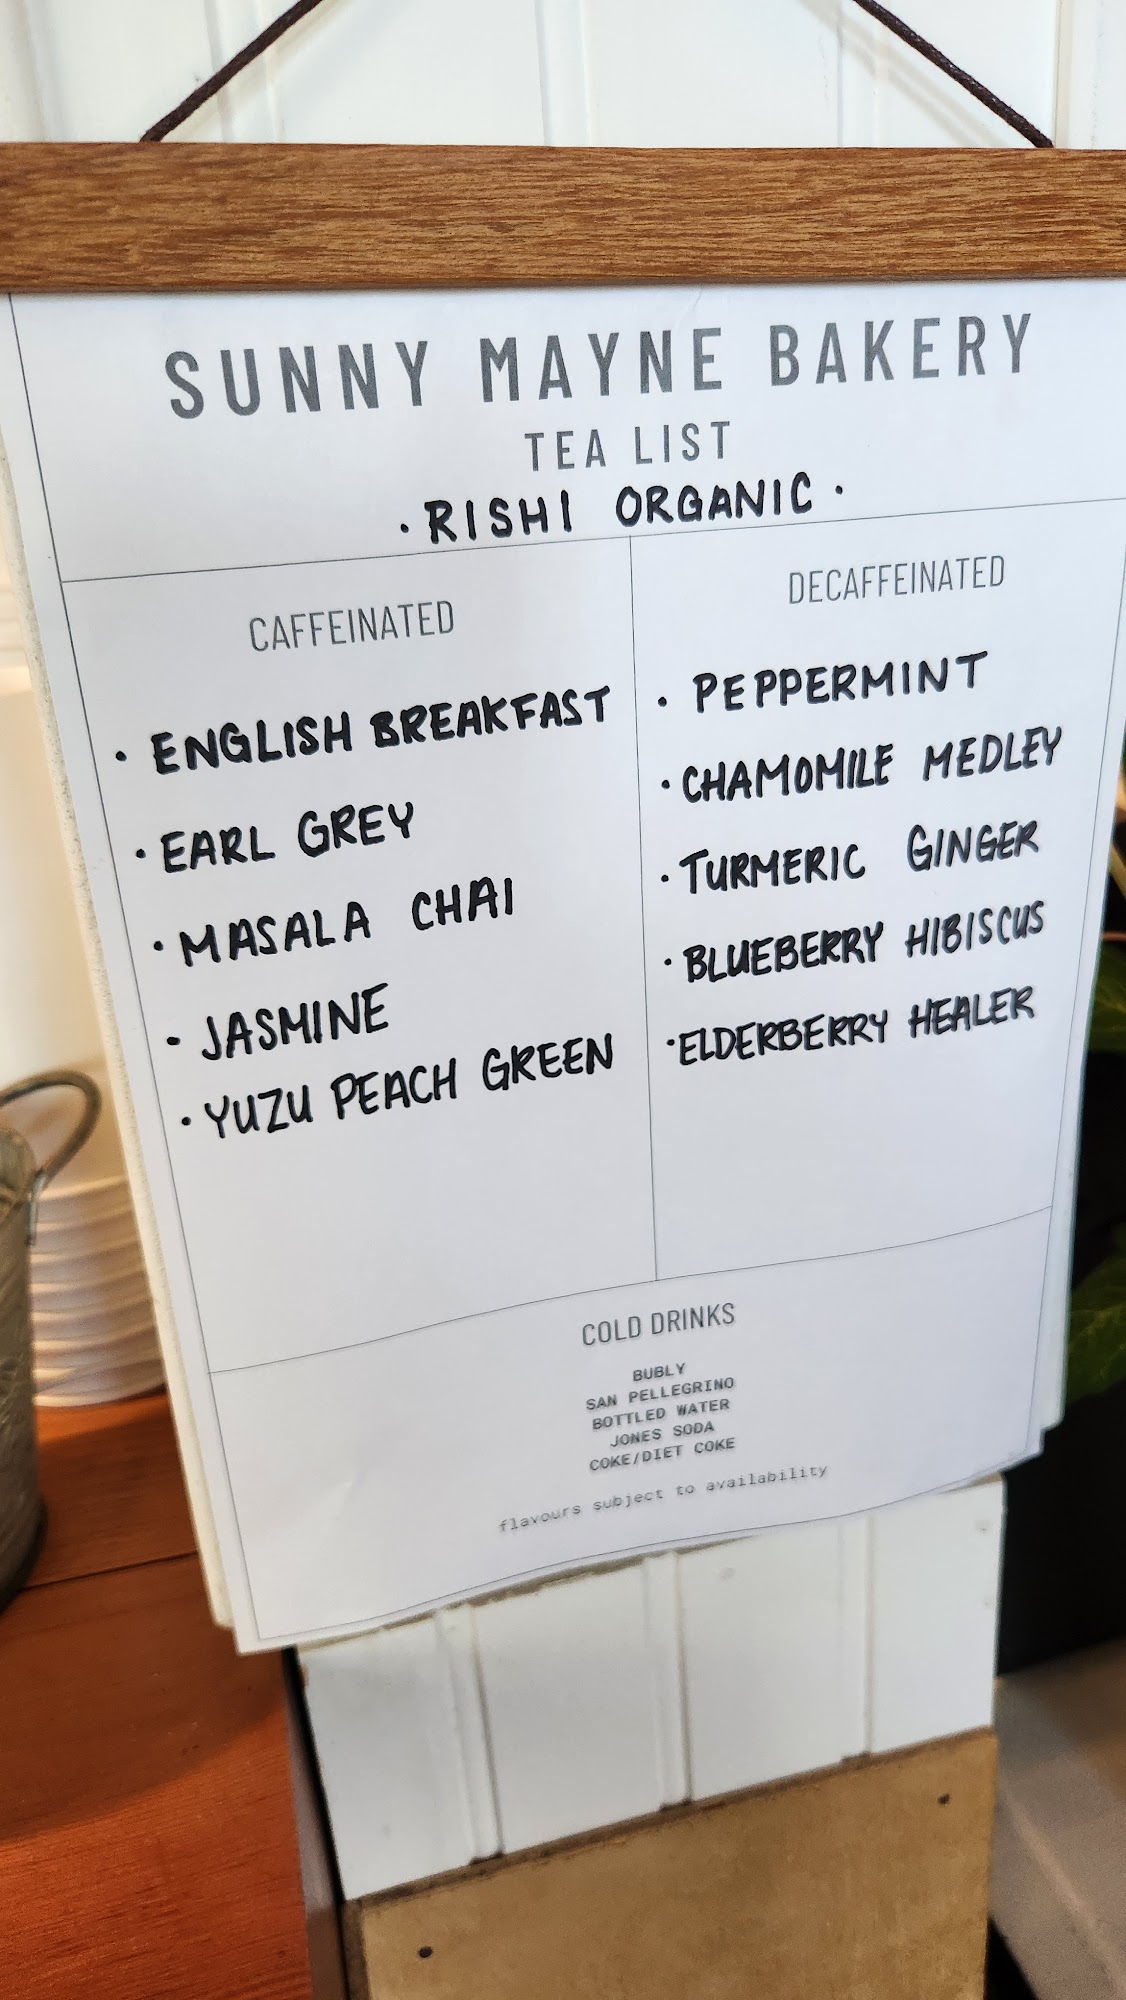 SUNNY MAYNE BAKERY
TEA LIST
· RISHI ORGANIC ·
CAFFEINATED
· ENGLISH BREAKFAST
· EARL GREY
· MASALA CHAI
· JASMINE
· YUZU PEACH GREEN
DECAFFEINATED
· PEPPERMINT
· CHAMOMILE MEDLEY
· TURMERIC GINGER
· BLUEBERRY HIBISCUS
· ELDERBERRY HEALER
COLD DRINKS
BUBLY
SAN PELLEGRINO
BOTTLED WATER
JONES SODA
COKE/DIET COKE
flavours subject to availability